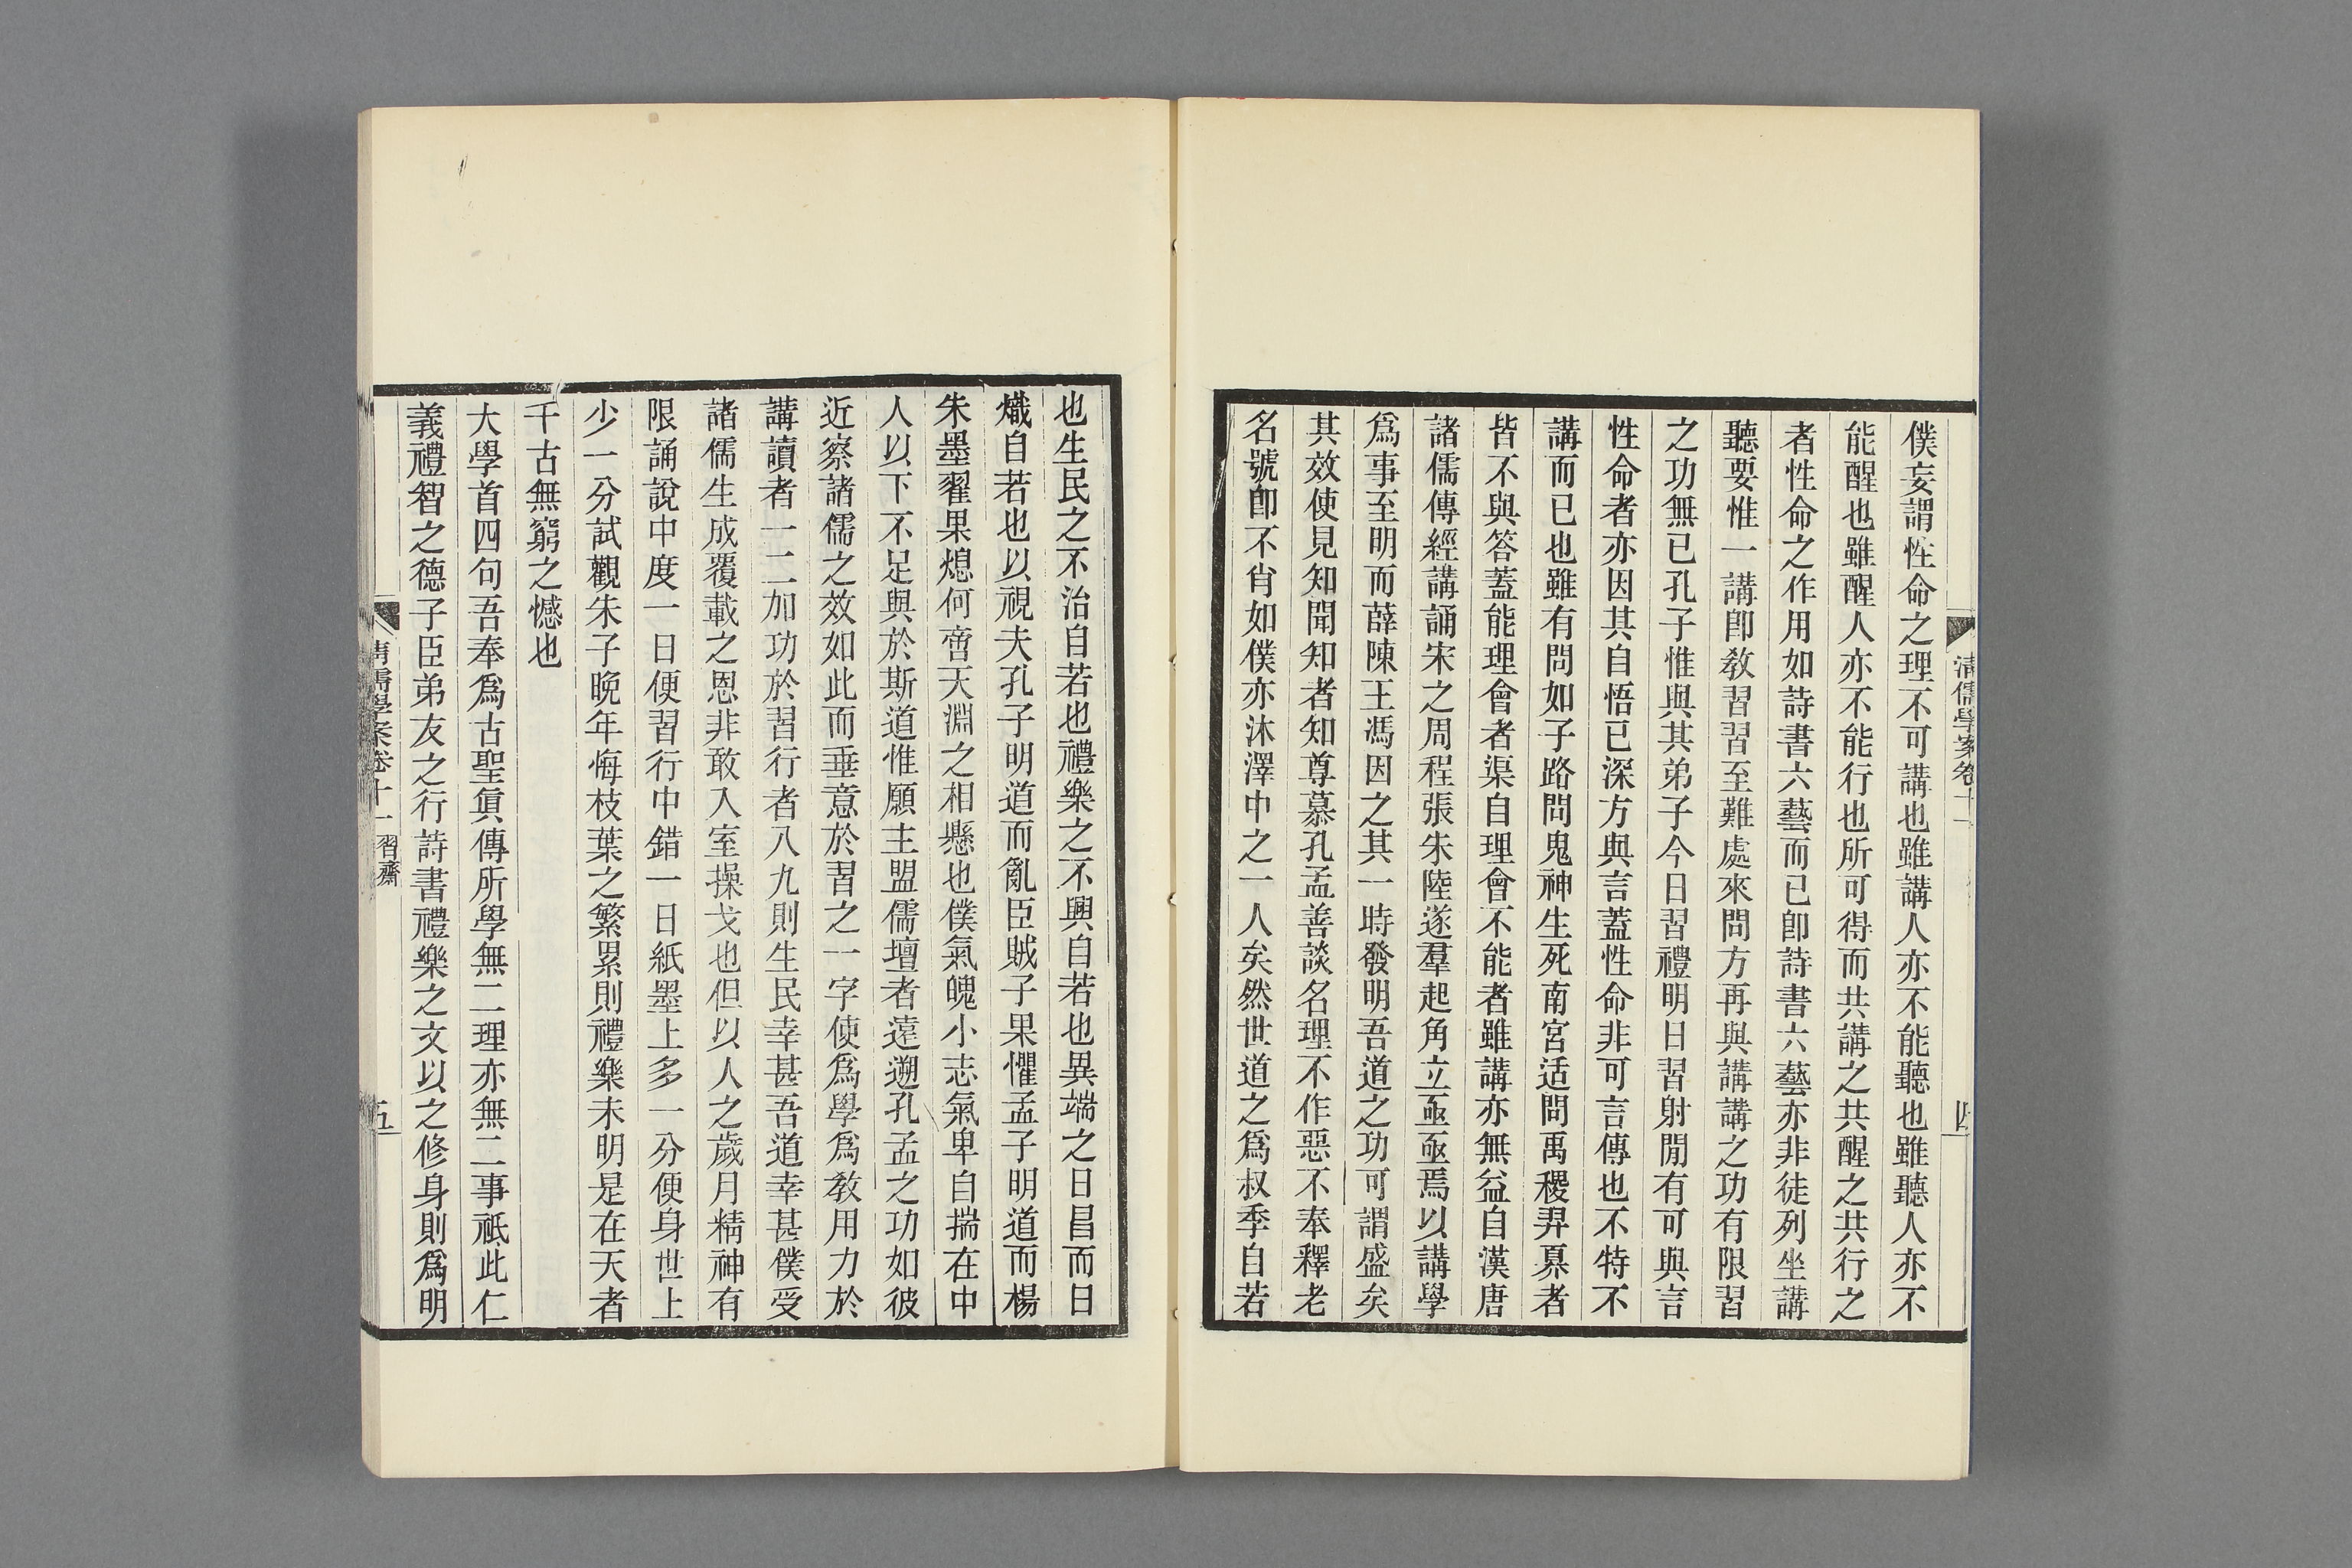 清儒學案卷十一
四
僕妄謂性命之理不可講也雖講人亦不能聽也雖聽人亦不
能醒也雖醒人亦不能行也所可得而共講之共醒之共行之
者性命之作用如詩書六藝而已卽詩書六藝亦非徒列坐講
聽要惟一講卽敎習習至難處來問方再與講講之功有限習
之功無已孔子惟與其弟子今日習禮明日習射閒有可與言
性命者亦因其自悟已深方與言蓋性命非可言傳也不特不
講而已也雖有問如子路問鬼神生死南宮适問禹稷羿奡者
皆不與答蓋能理會者渠自理會不能者雖講亦無益自漢唐
諸儒傳經講誦宋之周程張朱陸遂羣起角立亟亟焉以講學
爲事至明而薛陳王馮因之其一時發明吾道之功可謂盛矣
其效使見知聞知者知尊慕孔孟善談名理不作惡不奉釋老
名號卽不肖如僕亦沐澤中之一人矣然世道之爲叔季自若
也生民之不治自若也禮樂之不興自若也異端之日昌而日
熾自若也以視夫孔子明道而亂臣賊子果懼孟子明道而楊
朱墨翟果熄何啻天淵之相懸也僕氣魄小志氣卑自揣在中
人以下不足與於斯道惟願主盟儒壇者遠遡孔孟之功如彼
近察諸儒之效如此而垂意於習之一字使爲學爲敎用力於
講讀者一二加功於習行者八九則生民幸甚吾道幸甚僕受
諸儒生成覆載之恩非敢入室操戈也但以人之歲月精神有
限誦說中度一日便習行中錯一日紙墨上多一分便身世上
少一分試觀朱子晚年悔枝葉之繁累則禮樂未明是在天者
千古無窮之憾也
大學首四句吾奉爲古聖眞傳所學無二理亦無二事祇此仁
義禮智之德子臣弟友之行詩書禮樂之文以之修身則爲明
清儒學案卷十一 習齋
五